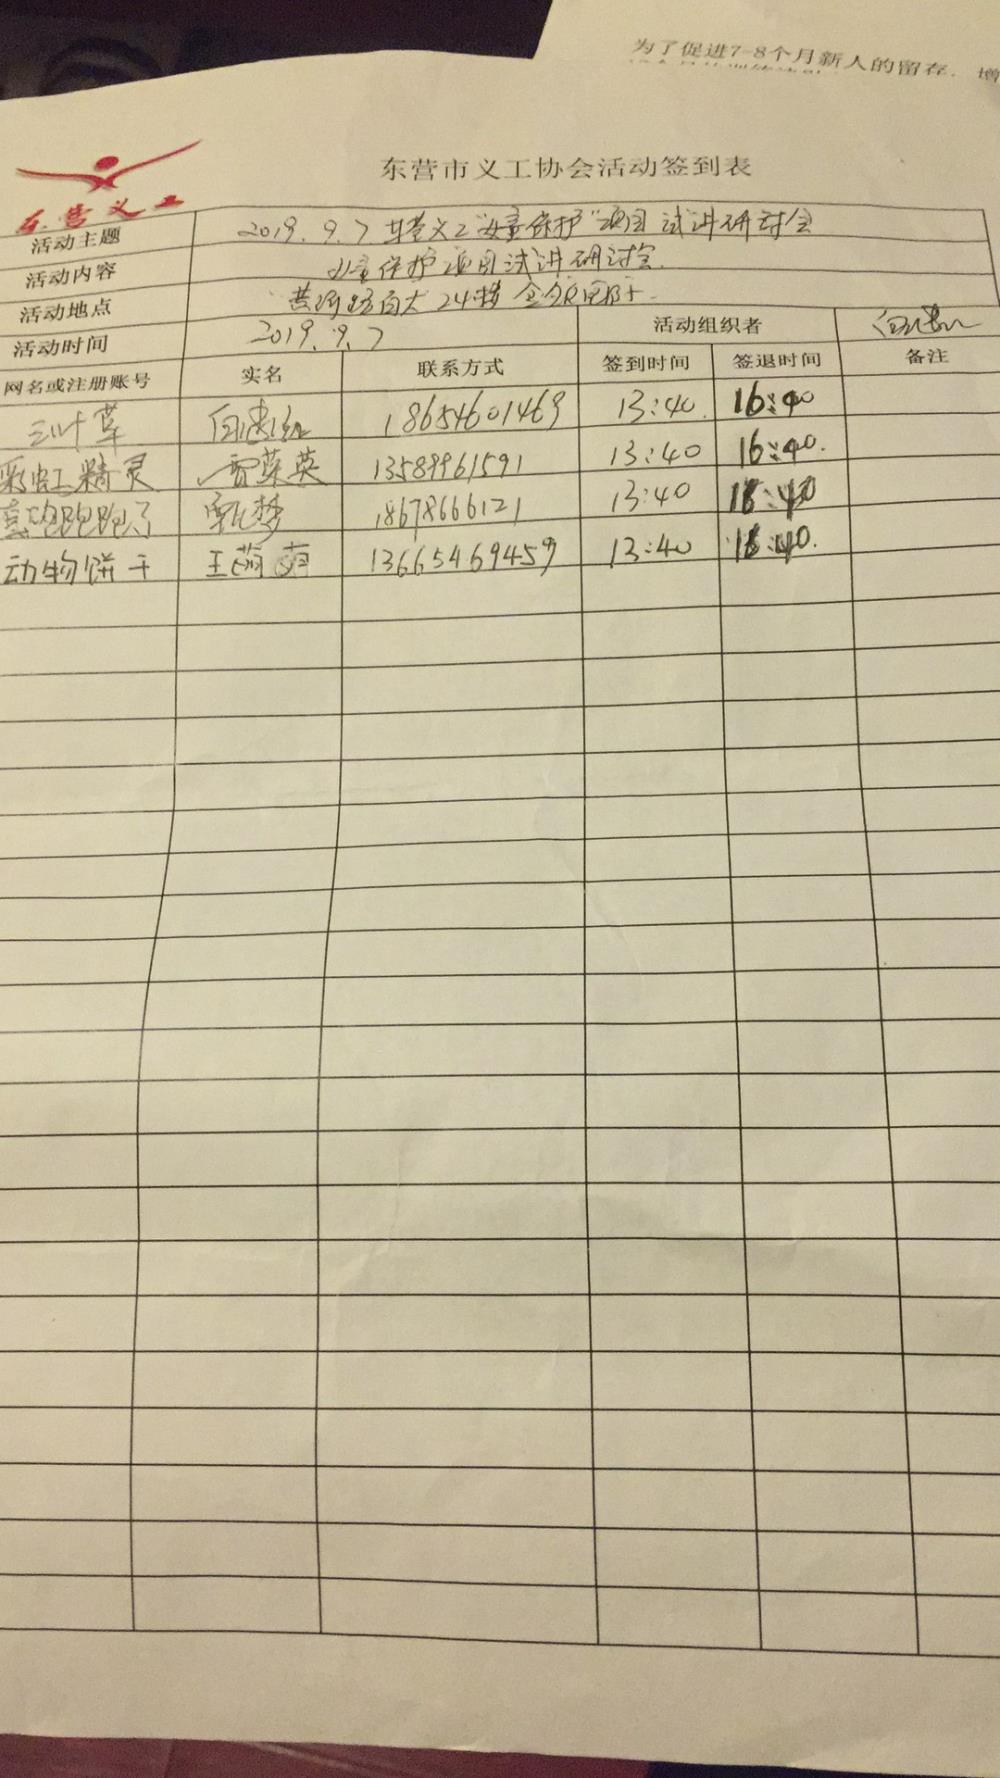 为了促进7-8个月新人的留存，增
东营义工
东营市义工协会活动签到表
活动主题 2019.9.7 东营义工"女童保护"项目试讲研讨会
活动内容 女童保护项目试讲研讨会.
活动地点 黄河路百大24楼
活动时间 2019.9.7 活动组织者
网名或注册账号 实名 联系方式 签到时间 签退时间 备注
三叶草 18654601469 13:40 16:40
彩虹精灵 贾菜英 13589961591 13:40 16:40.
跑跑了 郭梦 18678666121 13:40 16:40
动物饼干 王萌萌 13665469459 13:40 16:40.